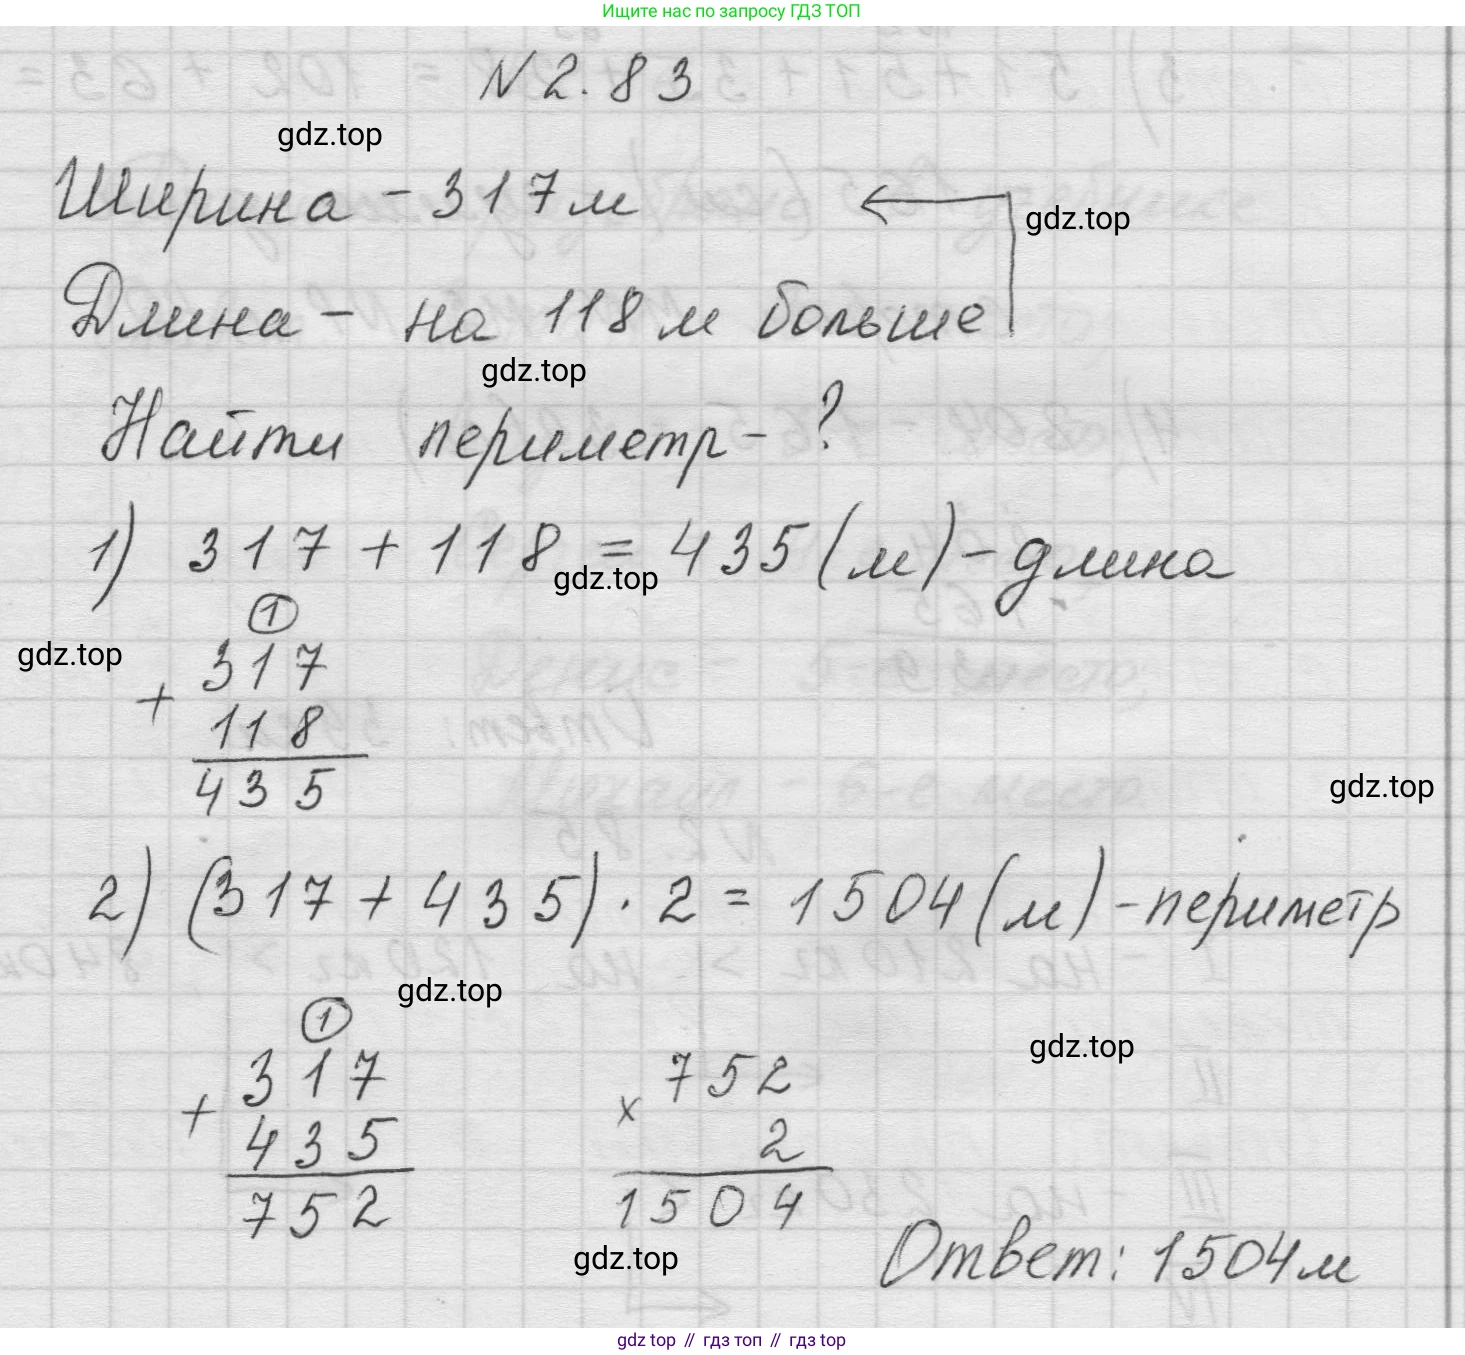 Ищите нас по запросу ГДЗ ТОП
N 2.83
gdz.top
Ширина - 317 м
gdz.top
Длина - на 118 м больше
gdz.top
Найти периметр - ?
1) 317 + 118 = 435 (м) - длина
gdz.top
1
gdz.top
317
+
118
435
gdz.top
2) (317 + 435) · 2 = 1504 (м) - периметр
gdz.top
1
gdz.top
317
+
435
752
752
×
2
1504
gdz.top
Ответ: 1504 м
gdz top // гдз топ // gdz top